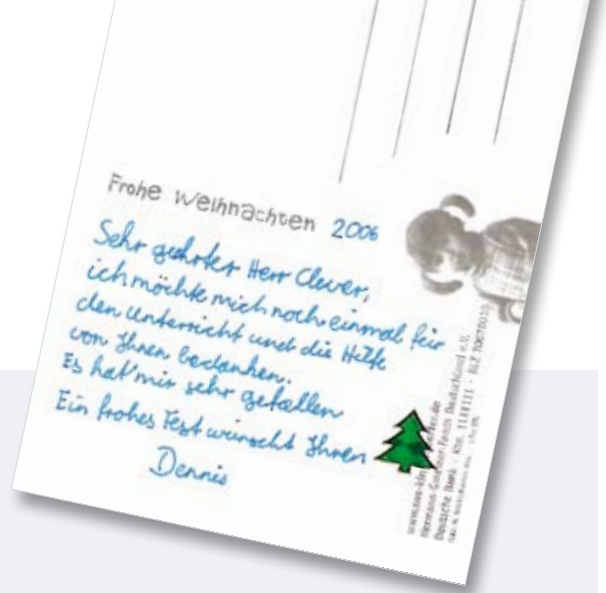 Frohe Weihnachten 2006
Sehr geehrter Herr Clever,
ich möchte mich noch einmal für
den Unterricht und die Hilfe
von Ihnen bedanken.
Es hat mir sehr gefallen
Ein frohes Fest wünscht Ihnen
Dennis
Deutsche Bank · Kto. 1111111 · BLZ